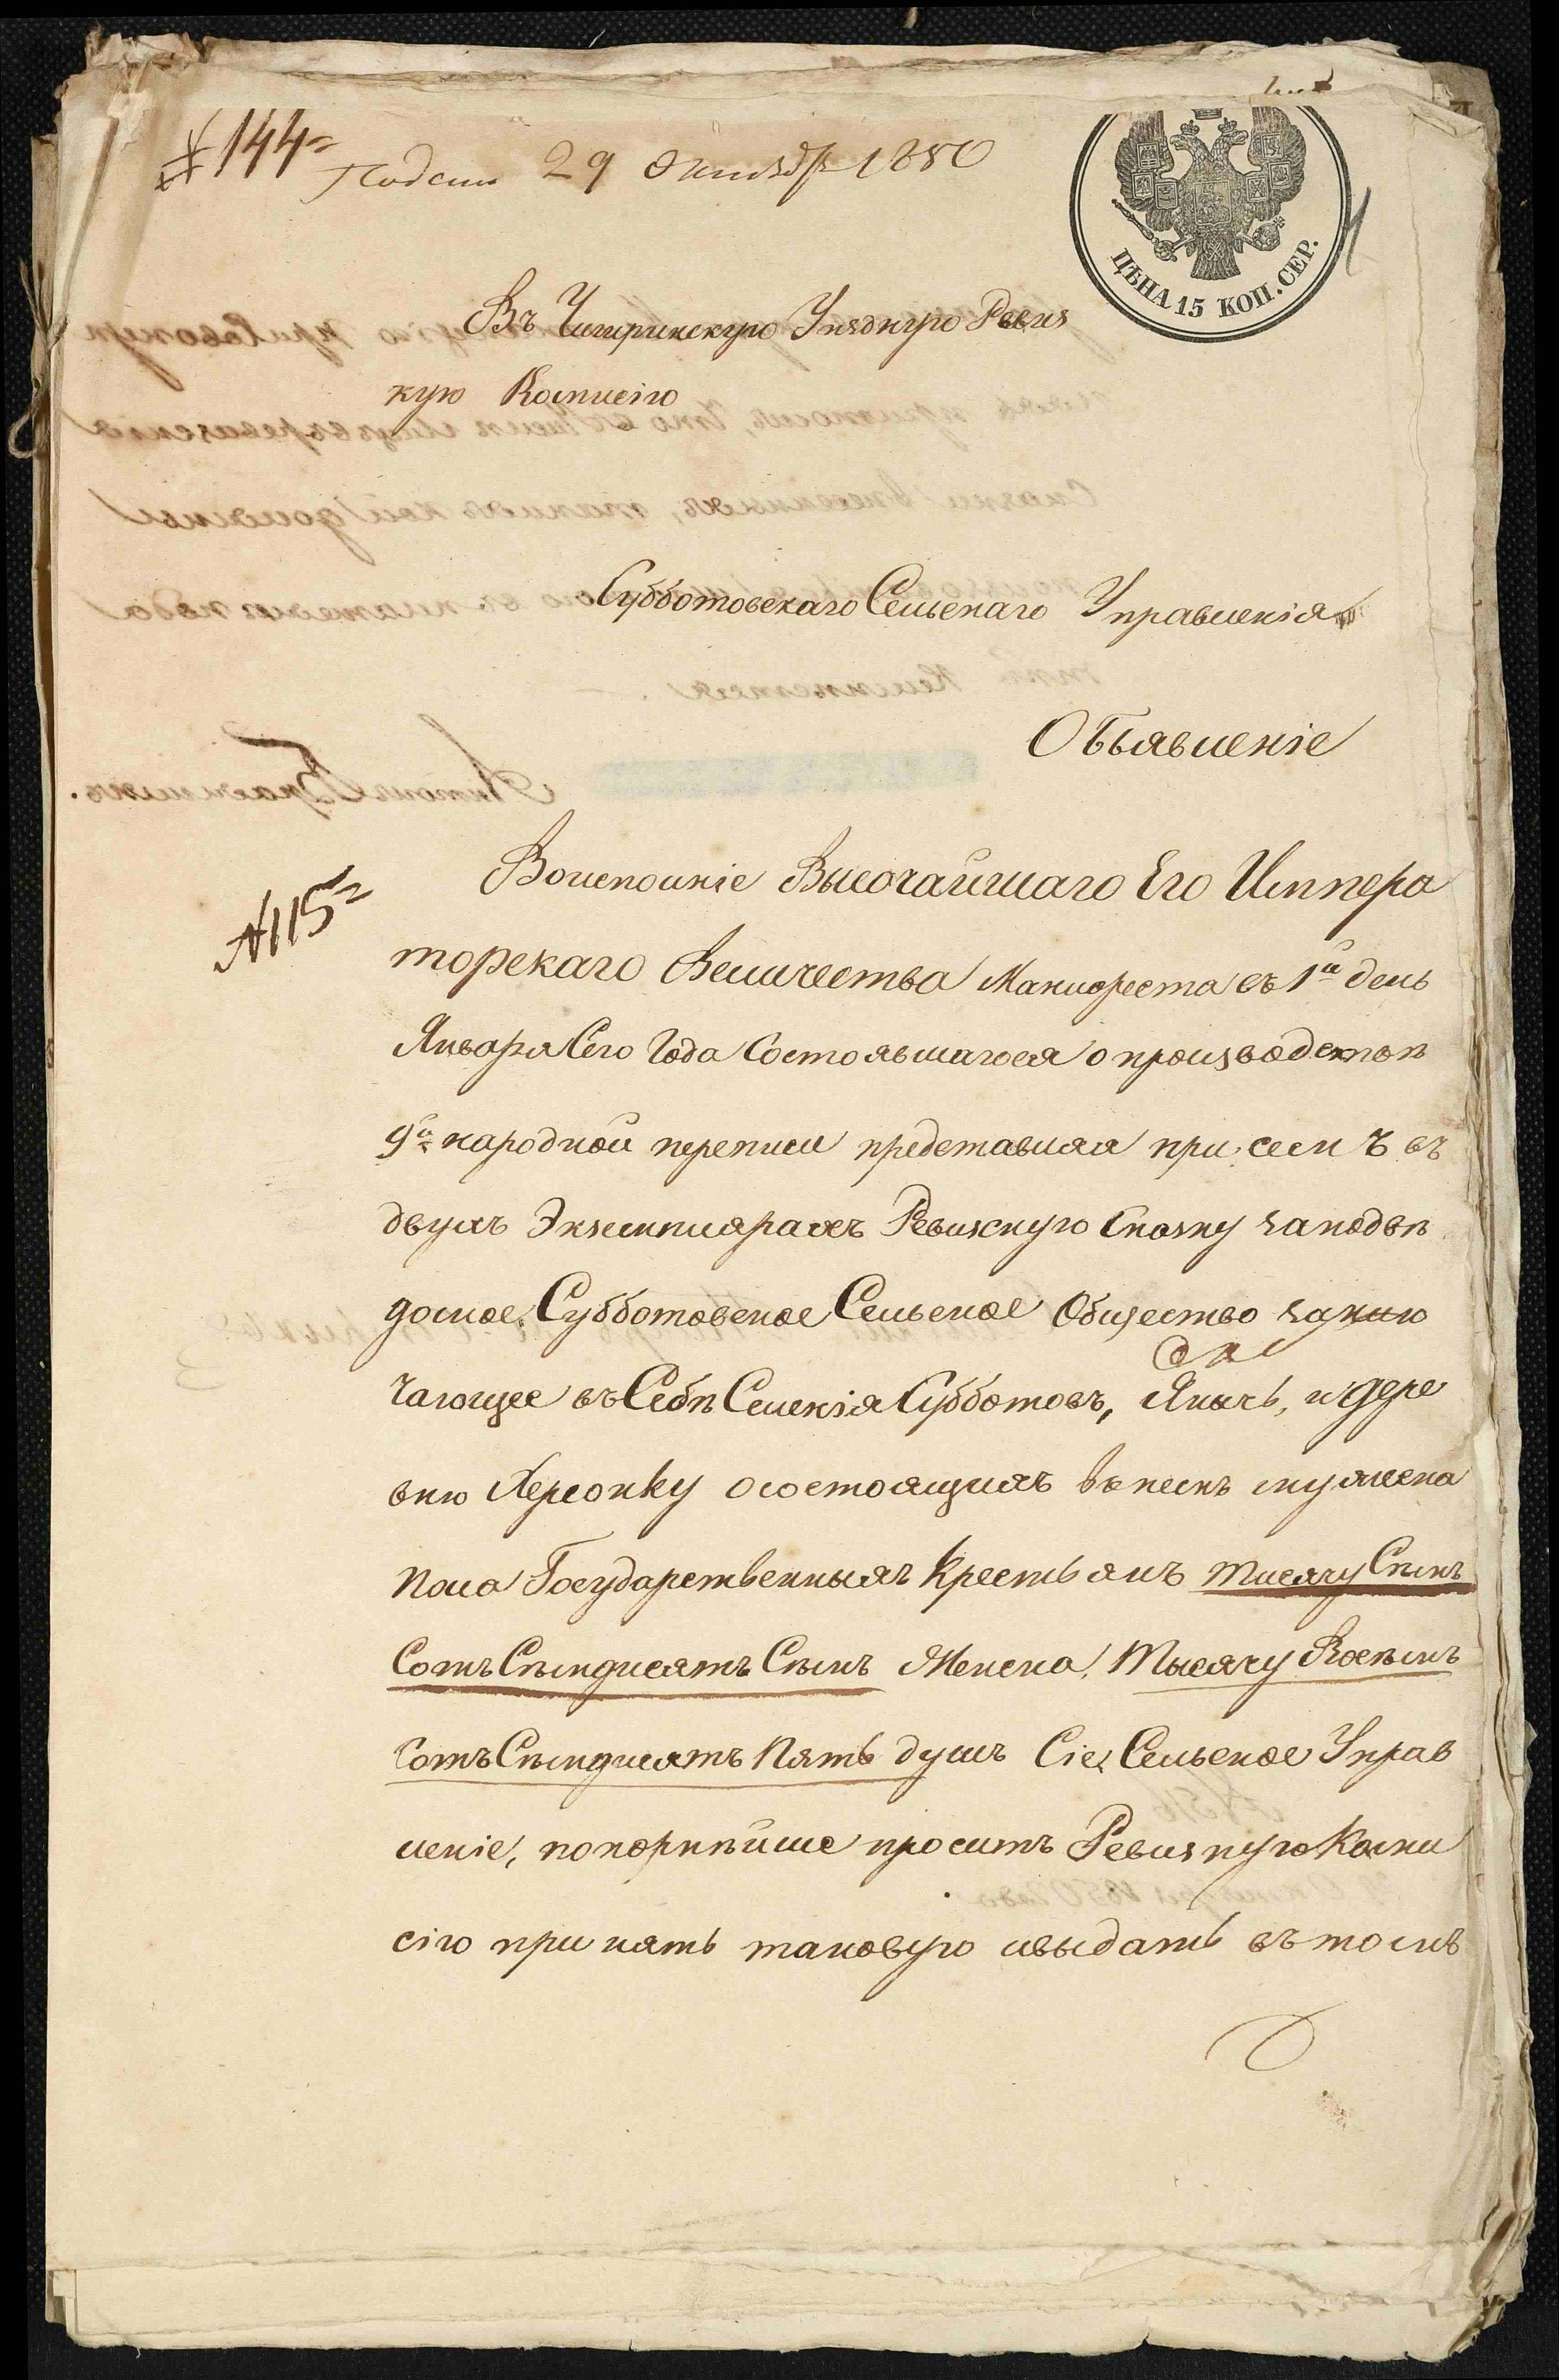 № 144
Подан 29 Октябр 1850
ЦѢНА 15 КОП. СЕР.
1
Въ Чигиринскую Уѣздную Ревиз
кую Комисію
Субботовскаго Сельскаго Управленія
Объявленіе
№ 115
Воисполніе Высочайшаго Его Импера
торскаго Величества Манифеста въ 1й день
Января Сего Года Состоявшагося о производствѣ
9й народной переписи представляя при семъ въ
двухъ Экземплярахъ Ревизскую Сказку заподвѣ
домое Субботовское Сельское Общество заклю
чающее въ Себѣ Селенія Субботовъ, Янычь, и дере
вню Херсонку осостоящихъ въ немъ мужеска
пола Государственныхъ крестьянъ тисячу Семъ
Сотъ Семдисятъ Семъ Женска, Тысячу Восемъ
Сотъ Семдисятъ Пять душъ Сіе Сельское Управ
леніе, покорнѣйше проситъ Ревизную Коми
сію принять таковую ивыдать въ томъ